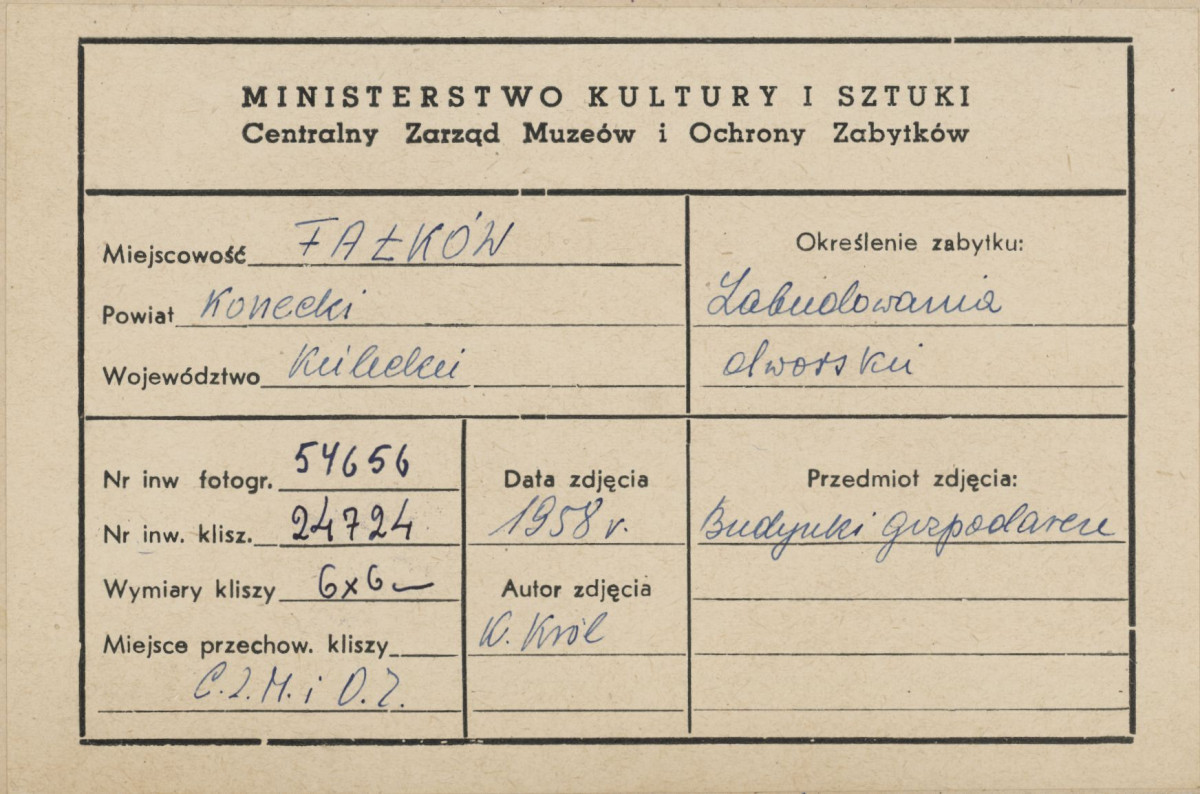 MINISTERSTWO KULTURY I SZTUKI
Centralny Zarząd Muzeów i Ochrony Zabytków
Miejscowość FAŁKÓW
Powiat Konecki
Województwo Kielecki
Określenie zabytku:
Zabudowania
dworskie
Nr inw fotogr. 54656
Nr inw. klisz. 24724
Wymiary kliszy 6x6
Miejsce przechow. kliszy
C.Z.M. i O.Z.
Data zdjęcia
1958 r.
Autor zdjęcia
K. Król
Przedmiot zdjęcia:
Budynki gospodarcze